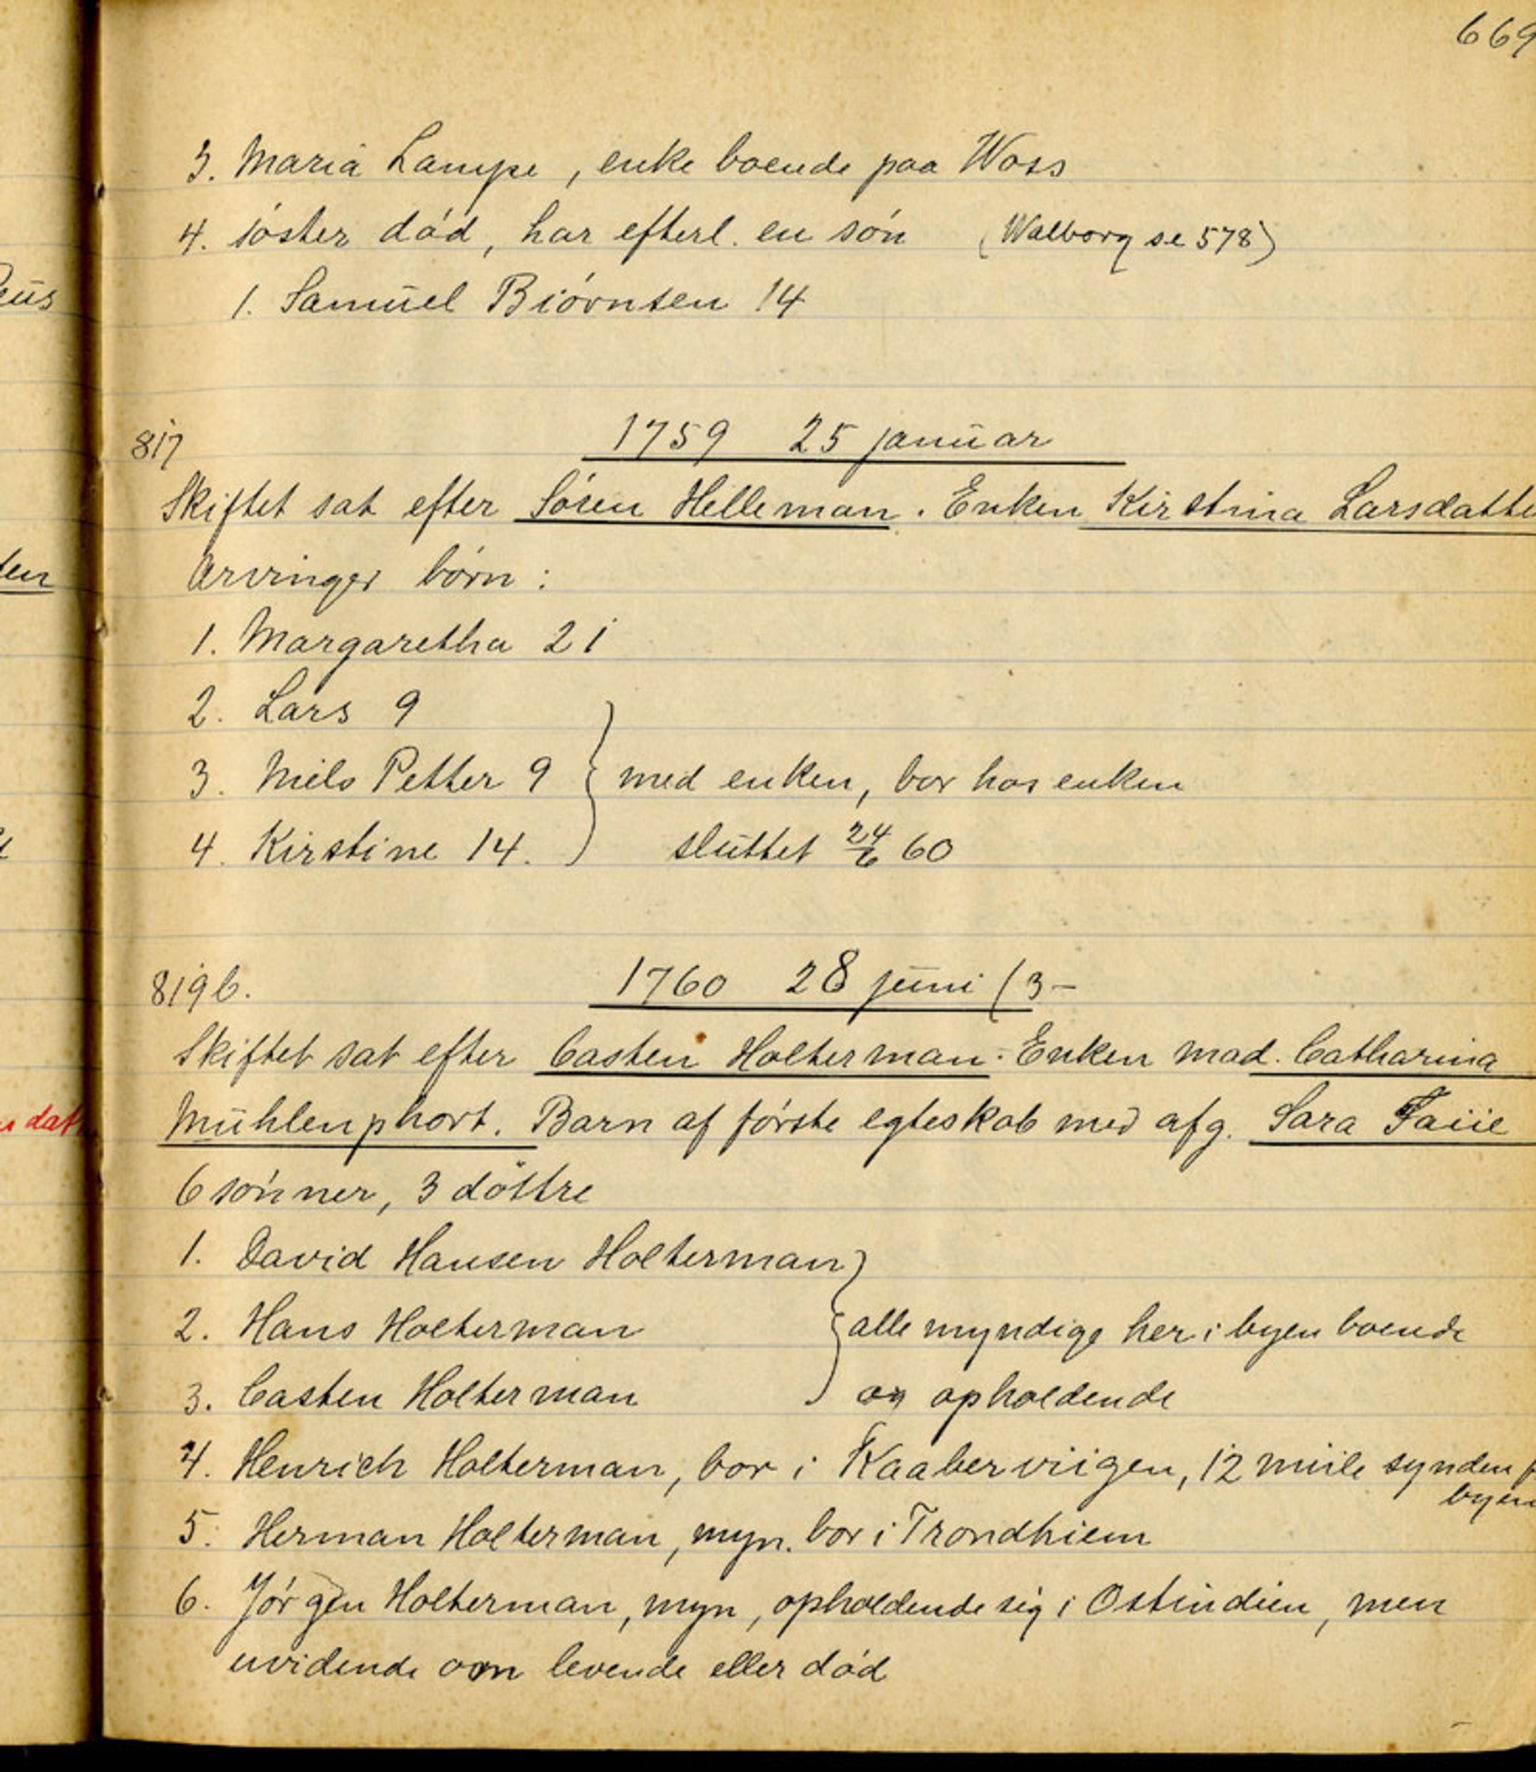 669
3. Maria Lampe, enke boende paa Woss
4. søster død, har efterl. en søn (Walborg se 578)
1. Samuel Biørnsen 14
817
1759 25 januar
Skiftet sat efter Søren Helleman. Enken Kirstina Larsdatte
Arvinger børn:
1. Margaretha 21
2. Lars 9
3. Niels Petter 9 } med enken, bor hos enken
4. Kirstine 14. sluttet 24/6 60
819b.
1760 28 juni (3-
Skiftet sat efter Casten Holterman. Enken mad. Catharina
Mühlenphort. Barn af første egteskab med afg. Sara Faiie
6 sønner, 3 døttre
1. David Hansen Holterman
2. Hans Holterman } alle myndige her i byen boende
3. Casten Holterman og opholdende
4. Henrich Holterman, bor i Kaaberviigen, 12 miile synden f
byen
5. Herman Holterman, myn. bor i Trondhiem
6. Jørgen Holterman, myn, opholdende sig i Ostindien, men
uvidende om levende eller død